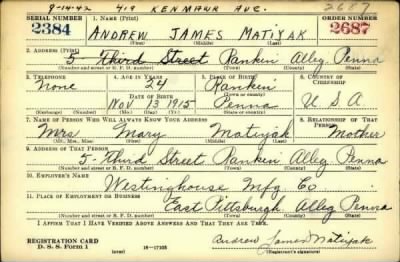 9-14-42 419 KENMAWR AVE. 2687
SERIAL NUMBER 1. NAME (Print) ORDER NUMBER
2384 ANDREW JAMES MATIYAK 2687
(First) (Middle) (Last)
2. ADDRESS (Print)
5- Third Street Rankin Alleg Penna
(Number and street or R. F. D. number) (Town) (County) (State)
3. TELEPHONE 4. AGE IN YEARS 5. PLACE OF BIRTH 6. COUNTRY OF CITIZENSHIP
None Rankin
DATE OF BIRTH (Town or county)
Nov 13 1915 Penna U S A
(Exchange) (Number) (Mo.) (Day) (Yr.) (State or country)
7. NAME OF PERSON WHO WILL ALWAYS KNOW YOUR ADDRESS 8. RELATIONSHIP OF THAT PERSON
Mrs Mary Matiyak Mother
(Mr., Mrs., Miss) (First) (Middle) (Last)
9. ADDRESS OF THAT PERSON
5- Third Street Rankin Alleg Penna
(Number and street or R. F. D. number) (Town) (County) (State)
10. EMPLOYER'S NAME
Westinghouse Mfg. Co
11. PLACE OF EMPLOYMENT OR BUSINESS
East Pittsburgh Alleg Penna
(Number and street or R. F. D. number) (Town) (County) (State)
I AFFIRM THAT I HAVE VERIFIED ABOVE ANSWERS AND THAT THEY ARE TRUE.
REGISTRATION CARD
D. S. S. Form 1 (over) 16-17105 Andrew James Matiyak
(Registrant's signature)